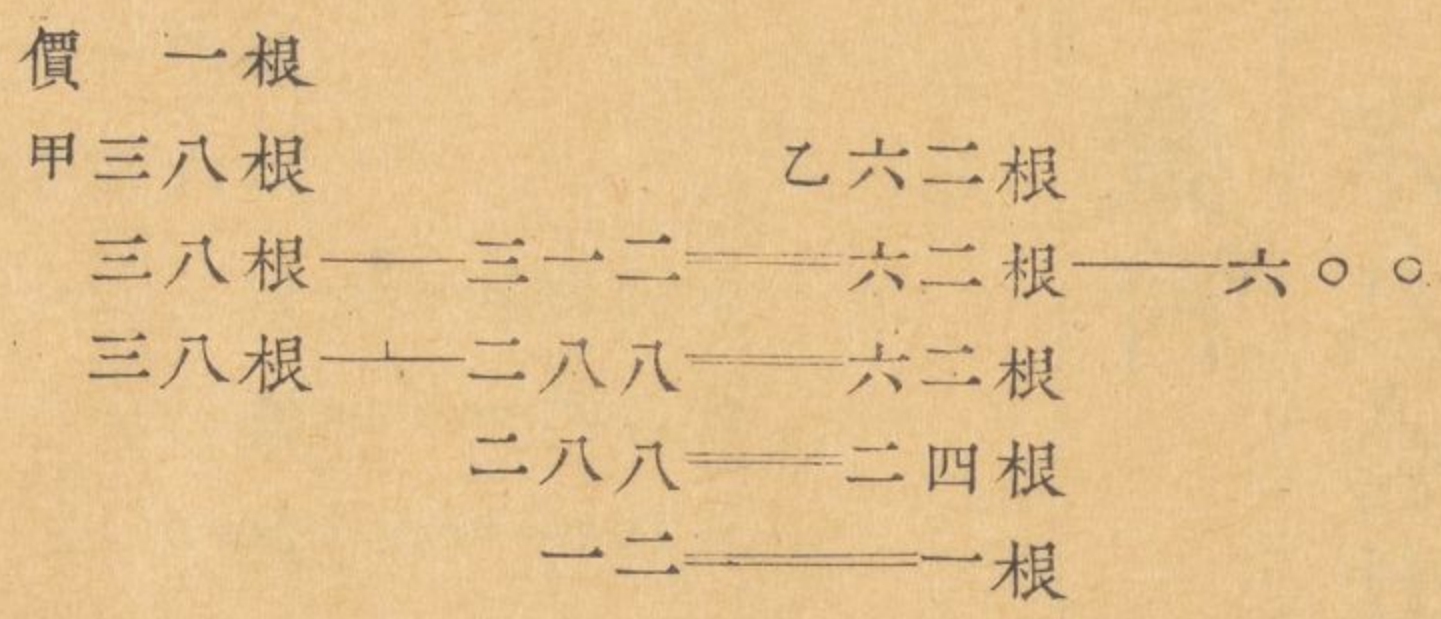 價 一根
甲三八根 乙六二根
三八根——三一二====六二根——六〇〇
三八根—⊥—二八八====六二根
二八八====二四根
一二======一根